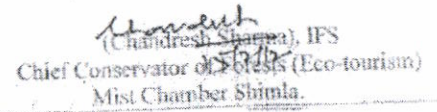 (Chandresh Sharma), IFS
Chief Conservator of Forests (Eco-tourism)
Mist Chamber Shimla.